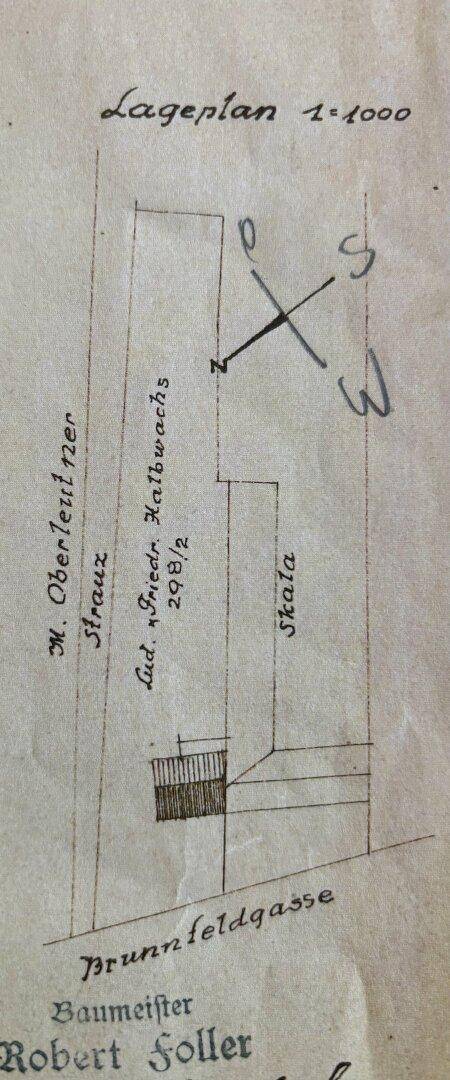 Lageplan 1:1000
O
S
N
W
M. Oberleutner
Straux
Lud. u Friedr. Halbwachs
298/2
Skala
Brunnfeldgasse
Baumeister
Robert Foller